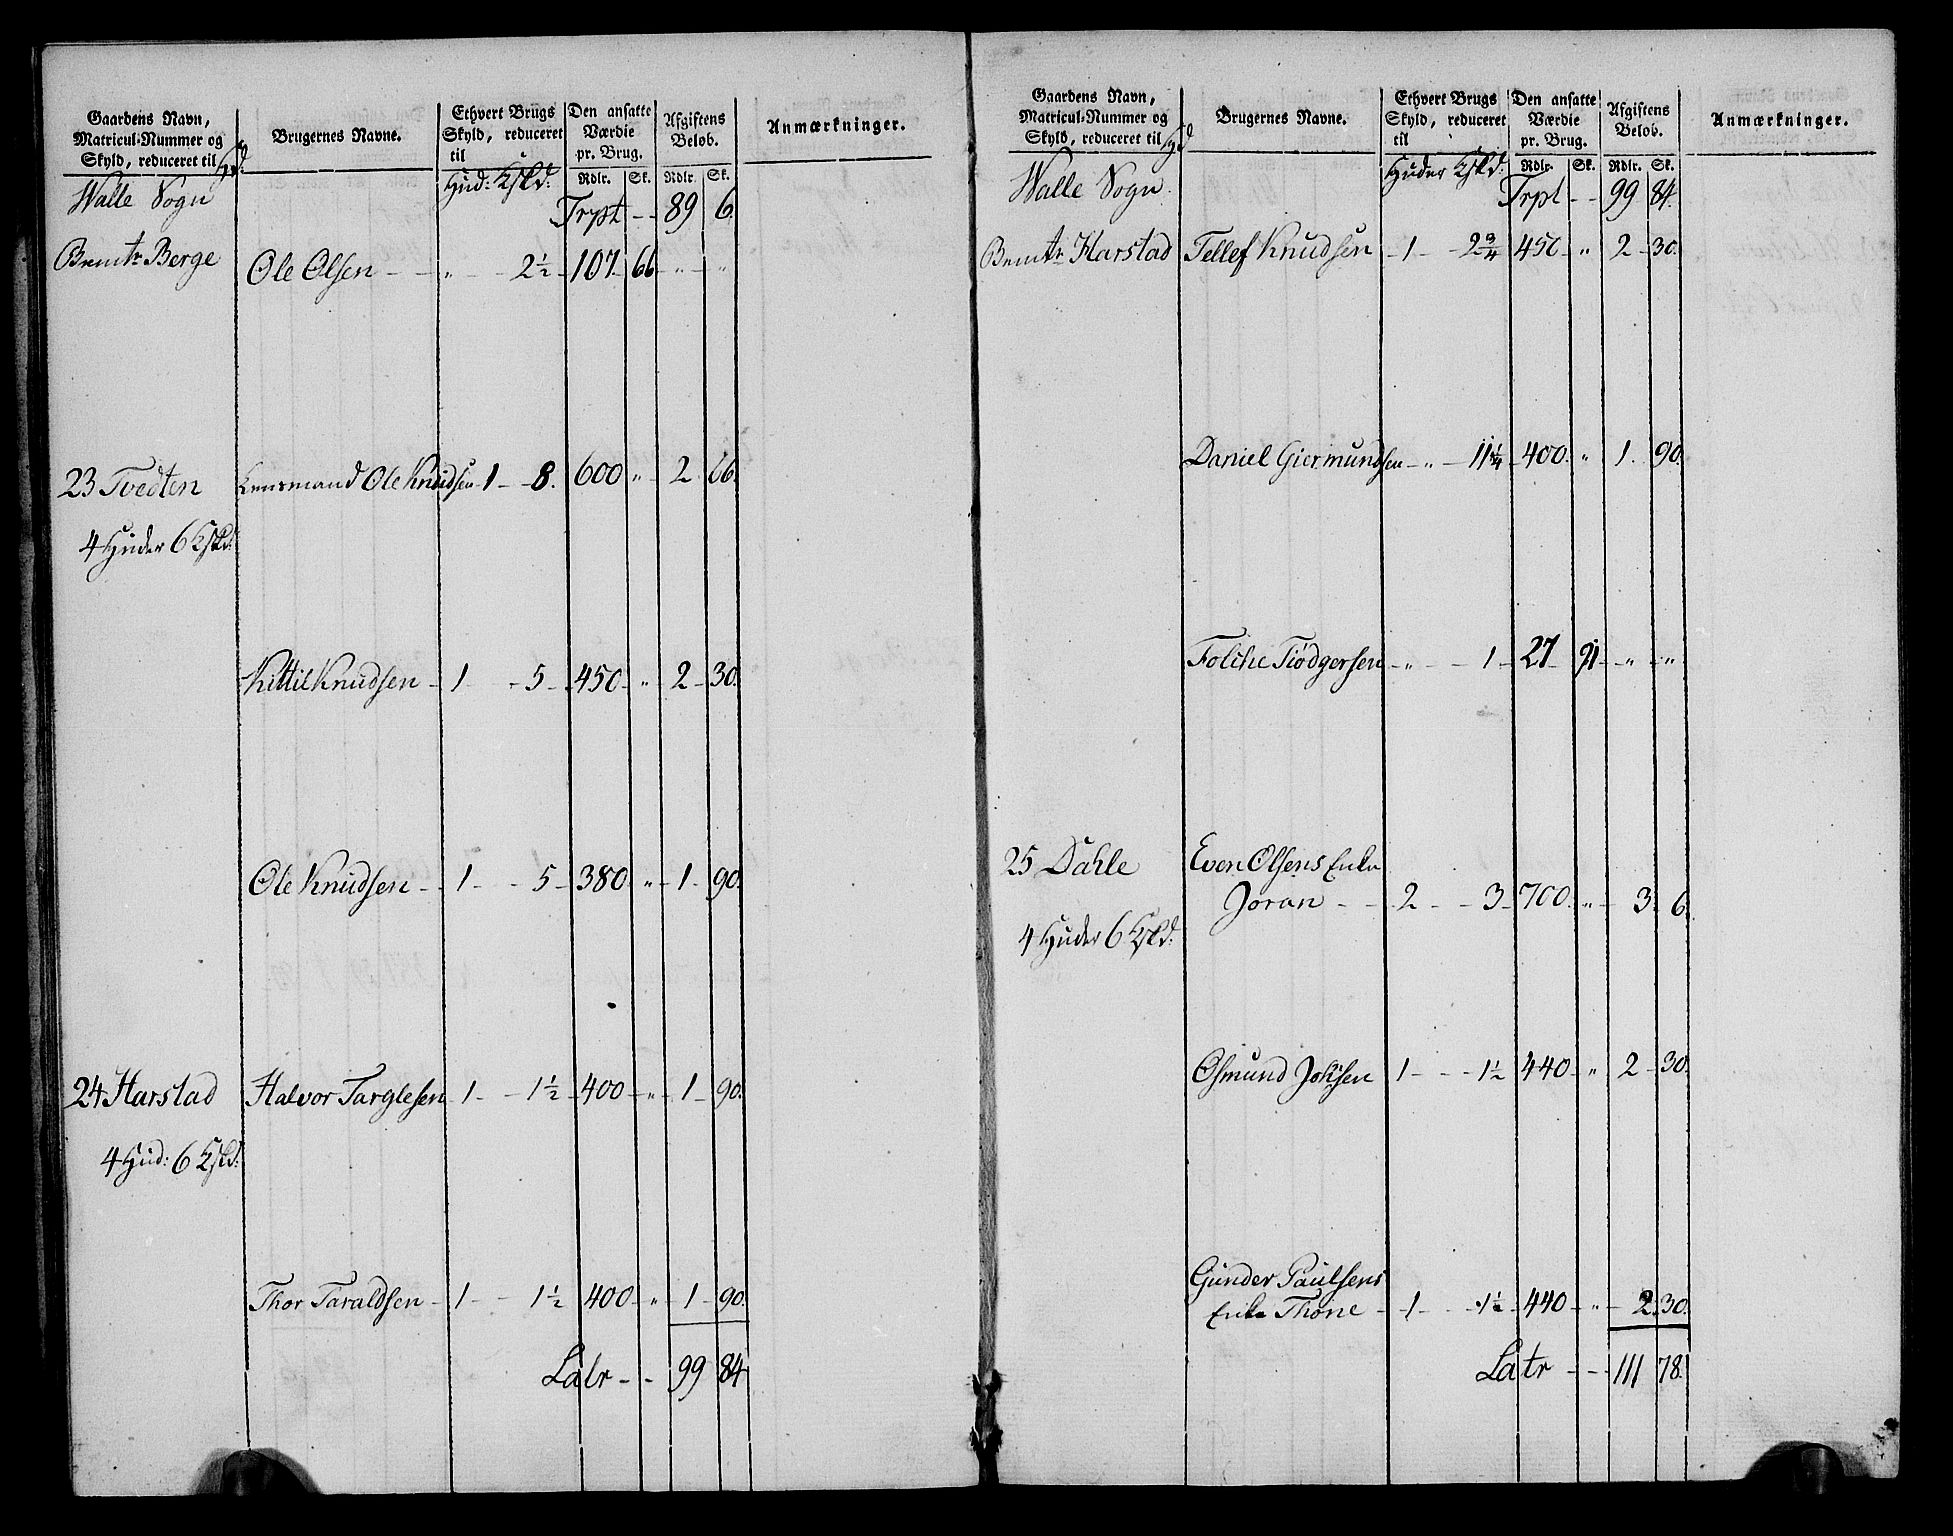 Gaardens Navn, Matricul-Nummer og Skyld, reduceret til Hd | Brugernes Navne. | Ethvert Brugs Skyld, reduceret til Hud: Kskd: | Den ansatte Værdie pr. Brug. Rdlr. Sk. | Afgiftens Beløb. Rdlr. Sk. | Anmærkninger.
Walle Sogn Trpt - - 89 6.
Bemtr Berge Ole Olsen - - " - - 2½ - 107. 66 - " - "
23 Tvedten Lensmand Ole Knudsen - 1 - - 8. 600 " - 2. 66.
4 Huder 6 Kskd:
Kittil Knudsen - 1 - - 5 - 450 - " - 2 - 30.
Ole Knudsen - - 1 - - 5 - 380. " - 1 - 90.
24 Harstad Halvor Targlesen - 1 - - 1½ - 400 - " - 1 - 90.
4 Hud: 6 Kskd:
Thor Taraldsen - 1 - - 1½ 400 - " - 1 - 90.
Latr - - 99 84
Gaardens Navn, Matricul-Nummer og Skyld, reduceret til Hd | Brugernes Navne. | Ethvert Brugs Skyld, reduceret til Huder Kskd: | Den ansatte Værdie pr. Brug. Rdlr. Sk. | Afgiftens Beløb. Rdlr. Sk. | Anmærkninger.
Walle Sogn. Trpt - - 99 84.
Bemtr Harstad Tellef Knudsen - 1 - - 2¾ - 450 - " - 2 - 30.
Daniel Giermundsen - " - 11¼ - 400. " 1. 90.
Folche Tiødgersen - " - - 1 - 27 - 91 - " - "
25 Dahle Even Olsens Enke
Joran - - - 2 - - 3 - 700. " - 3. 6.
4 Huder 6 Kskd:
Osmund Joksen 1 - - - 1½ 440 - " 2 - 30.
Gunder Paulsens
Enke Thone - - 1 - - - 1½ - 440 - " - 2. 30.
Latr - - - 111 78.